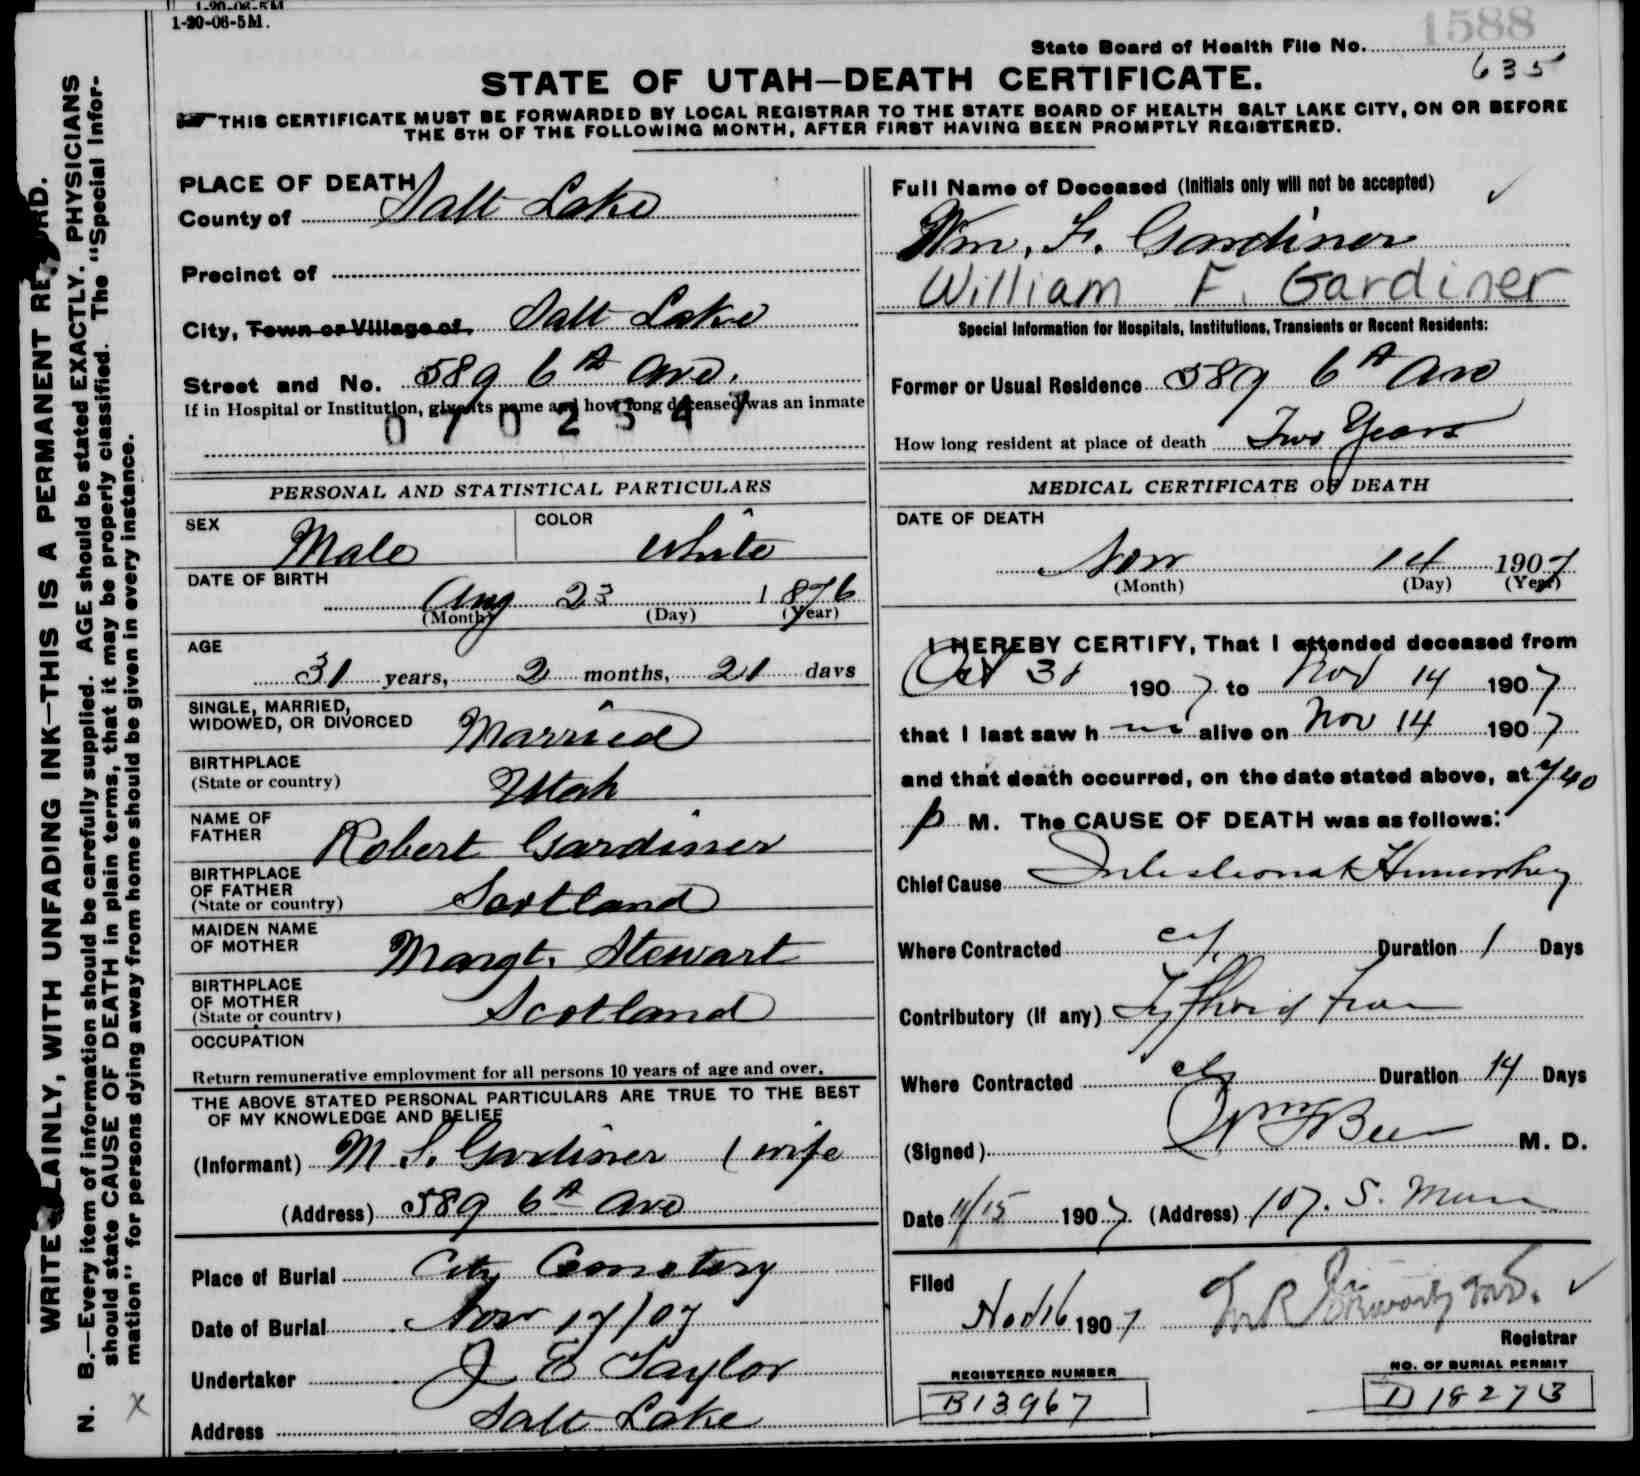 1-20-06-5M
1-20-06-5M.
1588
State Board of Health File No.
635
STATE OF UTAH—DEATH CERTIFICATE.
THIS CERTIFICATE MUST BE FORWARDED BY LOCAL REGISTRAR TO THE STATE BOARD OF HEALTH SALT LAKE CITY, ON OR BEFORE
THE 5TH OF THE FOLLOWING MONTH, AFTER FIRST HAVING BEEN PROMPTLY REGISTERED.
WRITE PLAINLY, WITH UNFADING INK—THIS IS A PERMANENT RECORD.
N. B.—Every item of information should be carefully supplied. AGE should be stated EXACTLY. PHYSICIANS
should state CAUSE OF DEATH in plain terms, that it may be properly classified. The "Special Infor-
mation" for persons dying away from home should be given in every instance.
X
PLACE OF DEATH
County of Salt Lake
Precinct of
City, Town or Village of Salt Lake
Street and No. 589 6th Ave.
If in Hospital or Institution, give its name and how long deceased was an inmate
0702547
PERSONAL AND STATISTICAL PARTICULARS
SEX Male COLOR White
DATE OF BIRTH
Aug 23 1876
(Month) (Day) (Year)
AGE
31 years, 2 months, 21 days
SINGLE, MARRIED,
WIDOWED, OR DIVORCED Married
BIRTHPLACE
(State or country) Utah
NAME OF
FATHER Robert Gardiner
BIRTHPLACE
OF FATHER
(State or country) Scotland
MAIDEN NAME
OF MOTHER Margt. Stewart
BIRTHPLACE
OF MOTHER
(State or country) Scotland
OCCUPATION
Return remunerative employment for all persons 10 years of age and over.
THE ABOVE STATED PERSONAL PARTICULARS ARE TRUE TO THE BEST
OF MY KNOWLEDGE AND BELIEF
(Informant) M. S. Gardiner (wife
(Address) 589 6th Ave
Place of Burial City Cemetery
Date of Burial Nov 17/07
Undertaker J E Taylor
Address Salt Lake
Full Name of Deceased (Initials only will not be accepted)
Wm. F. Gardiner
William F. Gardiner
Special Information for Hospitals, Institutions, Transients or Recent Residents:
Former or Usual Residence 589 6th Ave
How long resident at place of death Two Years
MEDICAL CERTIFICATE OF DEATH
DATE OF DEATH
Nov 14 1907
(Month) (Day) (Year)
I HEREBY CERTIFY, That I attended deceased from
Oct 31 1907 to Nov 14 1907
that I last saw him alive on Nov 14 1907
and that death occurred, on the date stated above, at 7 40
p M. The CAUSE OF DEATH was as follows:
Chief Cause Intestional Hemorrhag
Where Contracted Duration 1 Days
Contributory (if any) Typhoid Fever
Where Contracted Duration 14 Days
(Signed) M. D.
Date 11/15 1907 (Address) 107. S. Main
Filed
Nov 16 1907
Registrar
REGISTERED NUMBER
B13967
NO. OF BURIAL PERMIT
D 18273